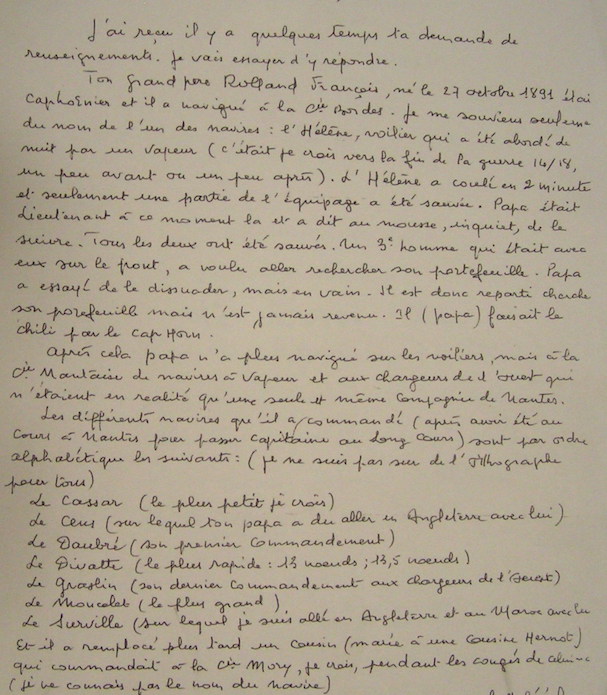 J'ai reçu il y a quelques temps ta demande de
renseignements. Je vais essayer d'y répondre.
Ton grand père Rolland François, né le 27 octobre 1891 étai
Caphornier et il a navigué à la Cie Bordes. Je me souviens seuleme
du nom de l'un des navires : l'Hélène, voilier qui a été abordé de
nuit par un vapeur (c'était je crois vers la fin de la guerre 14/18,
un peu avant ou un peu après). L'Hélène a coulé en 2 minute
et seulement une partie de l'équipage a été sauvée. Papa était
Lieutenant à ce moment la et a dit au mousse, inquiet, de le
suivre. Tous les deux ont été sauvés. Un 3e homme qui était avec
eux sur le pont, a voulu aller rechercher son portefeuille. Papa
a essayé de le dissuader, mais en vain. Il est donc reparti cherche
son portefeuille mais n'est jamais revenu. Il (papa) faisait le
chili par le cap Horn.
Après cela papa n'a plus navigué sur les voiliers, mais à la
Cie Nantaise de navires à vapeur et aux chargeurs de l'ouest qui
n'étaient en réalité qu'une seule et même Compagnie de Nantes.
Les différents navires qu'il a commandé (après avoir été au
Cours à Nantes pour passer capitaine au Long Cours) sont par ordre
alphabétique les suivants : (je ne suis pas sur de l'orthographe
pour tous)
Le Cassar (le plus petit je crois)
Le Cens (sur lequel ton papa a du aller en Angleterre avec lui)
Le Daubré (son premier commandement)
Le Divatte (le plus rapide : 13 noeuds ; 13,5 noeuds)
Le Graslin (son dernier commandement aux chargeurs de l'Ouest)
Le Moncalet (le plus grand)
Le Surville (sur lequel je suis allé en Angleterre et au Maroc avec lu
Et il a remplacé plus tard un cousin (marié à une cousine Hernot)
qui commandait à la Cie Mory, je crois, pendant les congés de
(je ne connais pas le nom du navire)